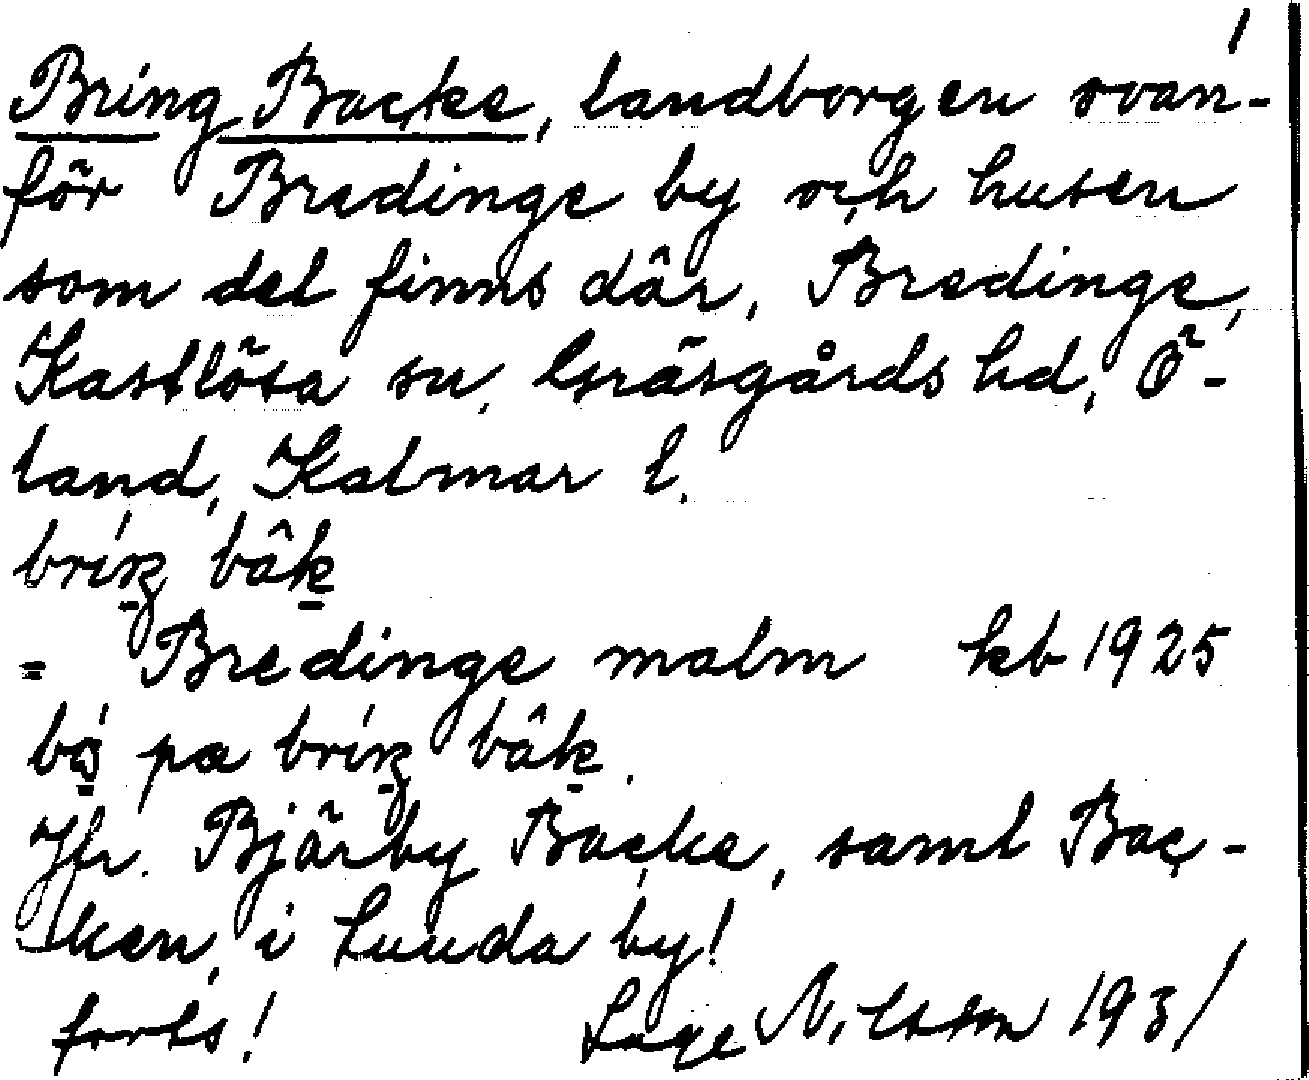 1
Bring Backe, landborgen ovan-
för Bredinge by och husen
som det finns där, Bredinge,
Kastlösa sn, Gräsgårds hd, Ö-
land, Kalmar l.
bâk
= Bredinge malm kb 1925
pœ bâk.
Jfr. Bjärby Backe, samt Bac-
ken, i Lunda by!
forts! Lage Nilsson 1931